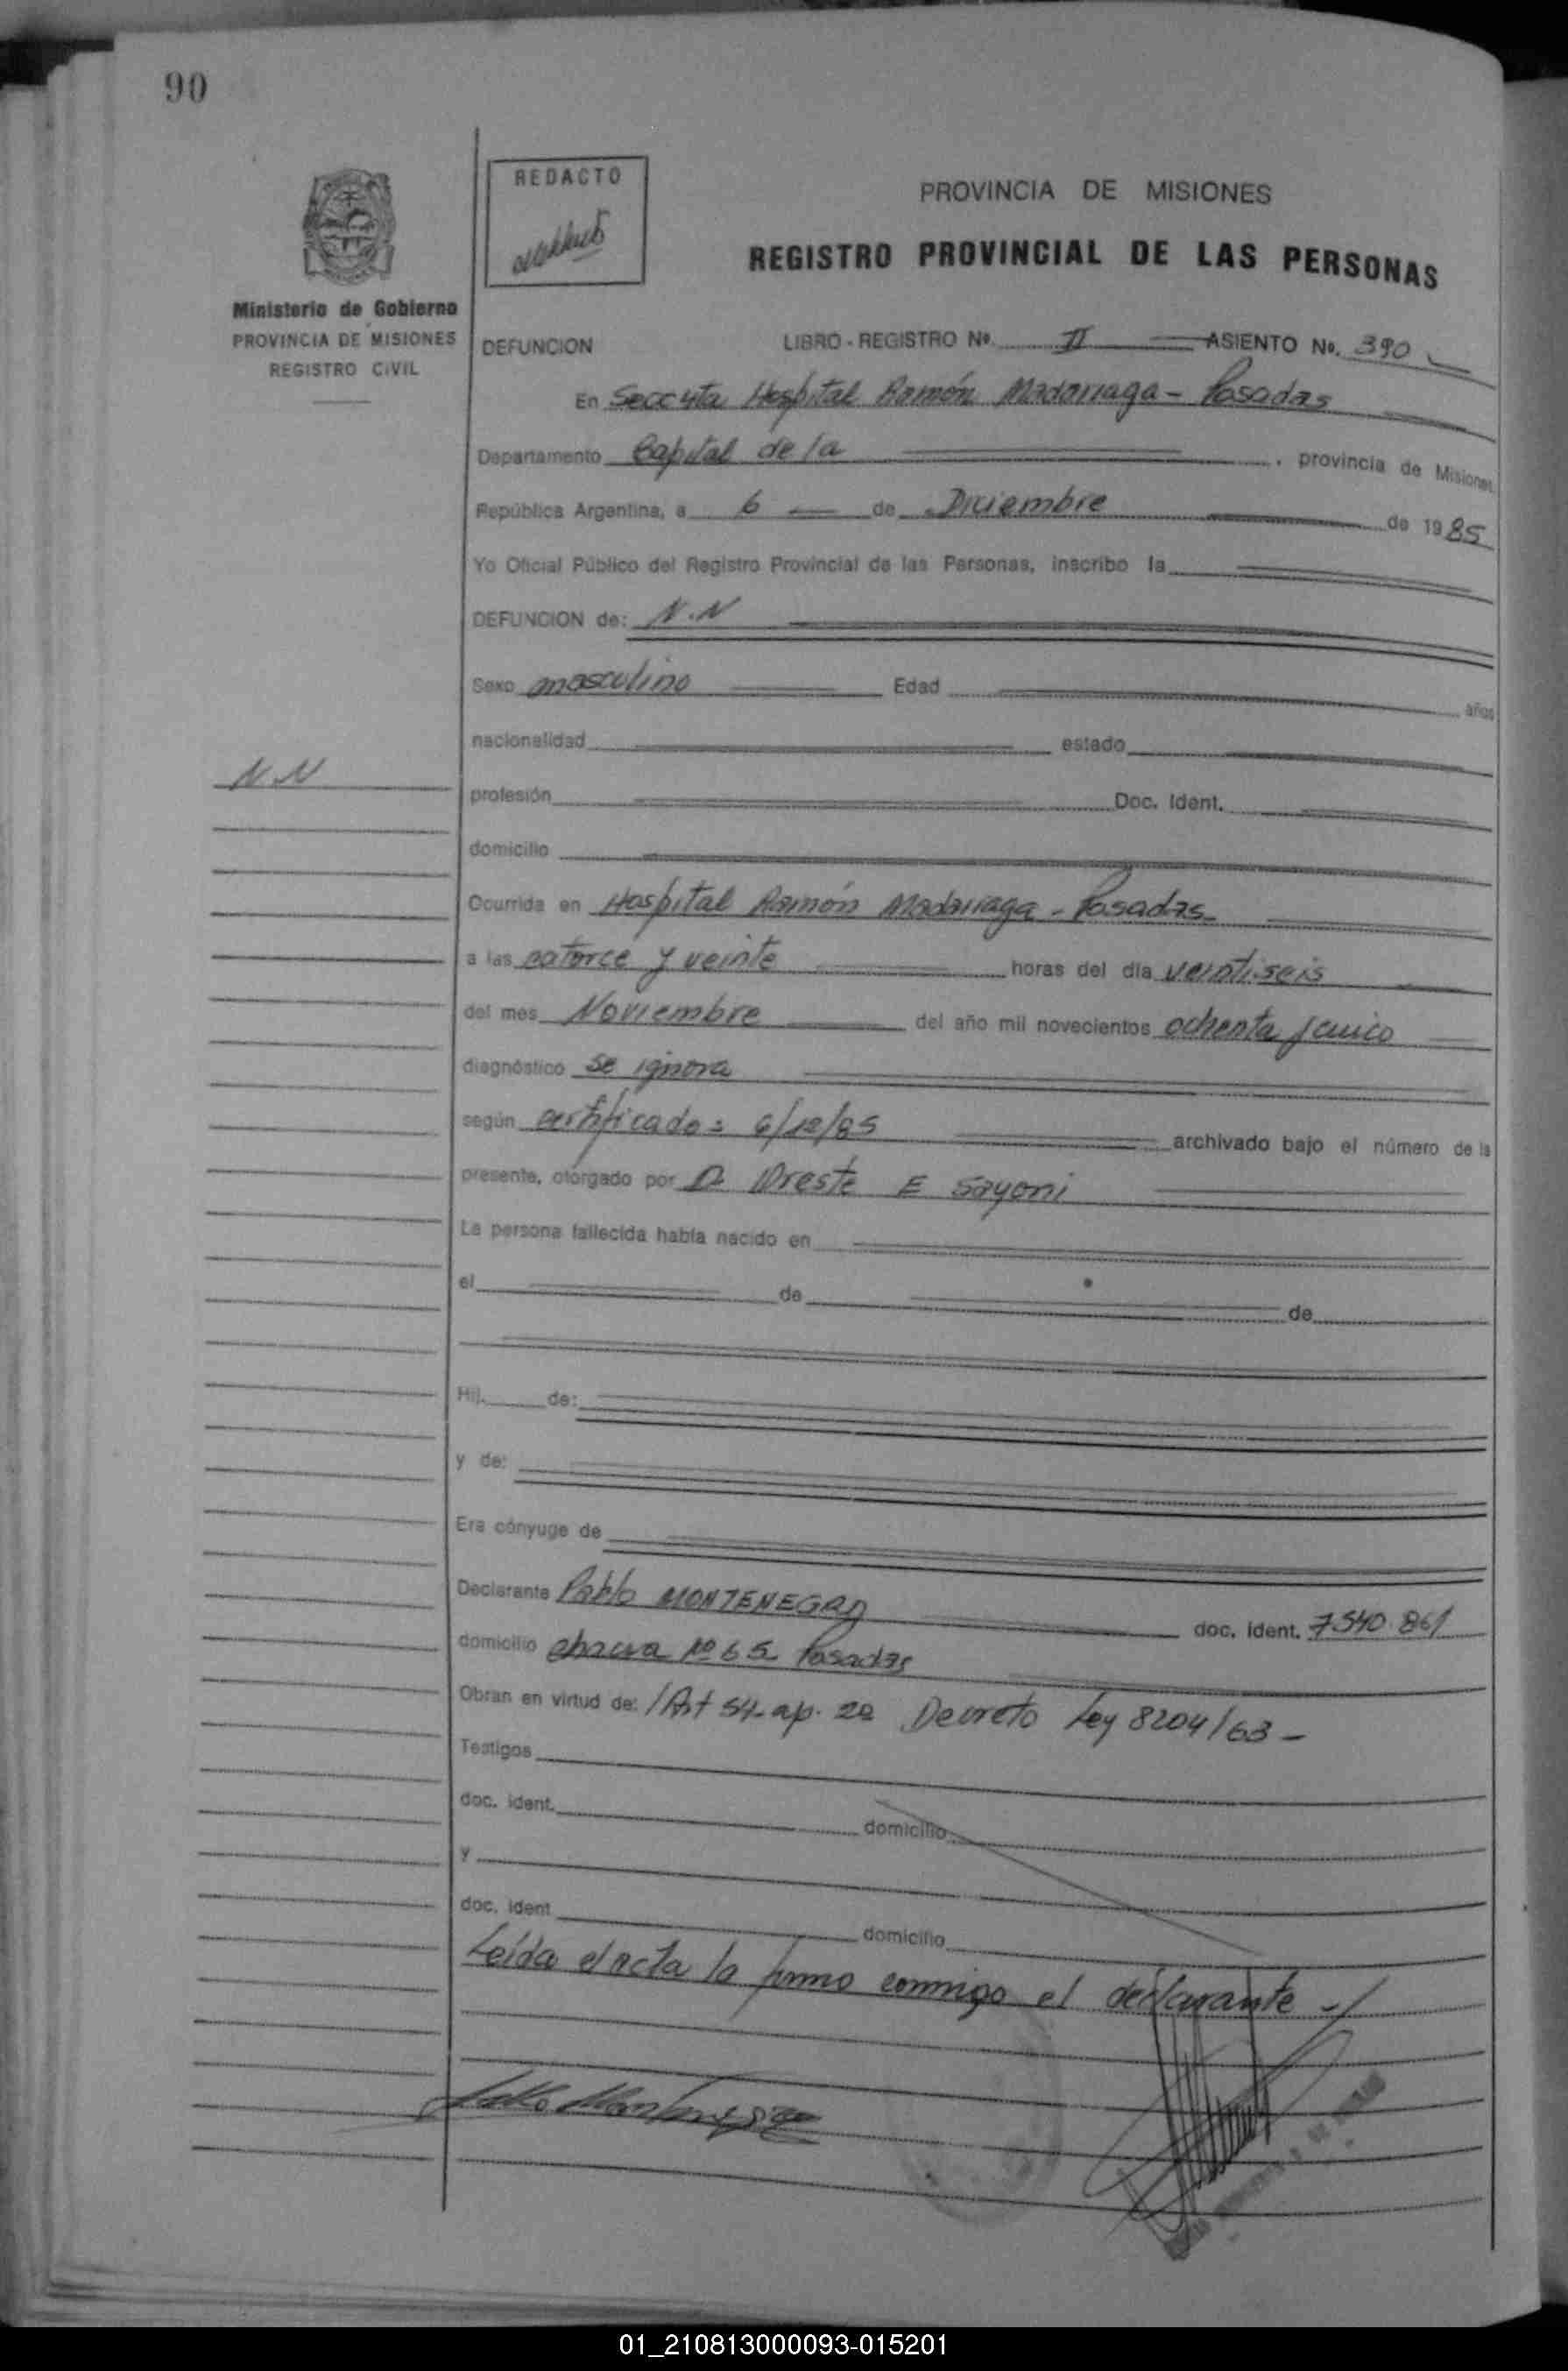 90
REDACTO
PROVINCIA DE MISIONES
REGISTRO PROVINCIAL DE LAS PERSONAS
Ministerio de Gobierno
PROVINCIA DE MISIONES
REGISTRO CIVIL
DEFUNCION LIBRO - REGISTRO No. II ASIENTO No. 390
En Secc 4ta Hospital Ramón Madariaga - Posadas
Departamento Capital de la , provincia de Misiones
República Argentina, a 6 de Diciembre de 1985
Yo Oficial Público del Registro Provincial de las Personas, inscribo la
DEFUNCION de: N.N
Sexo masculino Edad años
nacionalidad estado
N.N
profesión Doc. Ident.
domicilio
Ocurrida en Hospital Ramón Madariaga - Posadas
a las catorce y veinte horas del día veintiseis
del mes Noviembre del año mil novecientos ochenta y cinco
diagnóstico se ignora
según certificado: 6/12/85 archivado bajo el número de la
presente, otorgado por D. Oreste E Sayoni
La persona fallecida había nacido en
el de de
Hij. de:
y de:
Era cónyuge de
Declarante Pablo MONTENEGRO doc. ident. 7540.861
domicilio chacra No 65 Posadas
Obran en virtud de: /Art 54 ap. 2o Decreto Ley 8204/63 -
Testigos
doc. ident. domicilio
y
doc. ident domicilio
Leída el acta la firmo conmigo el declarante -/
01_210813000093-015201